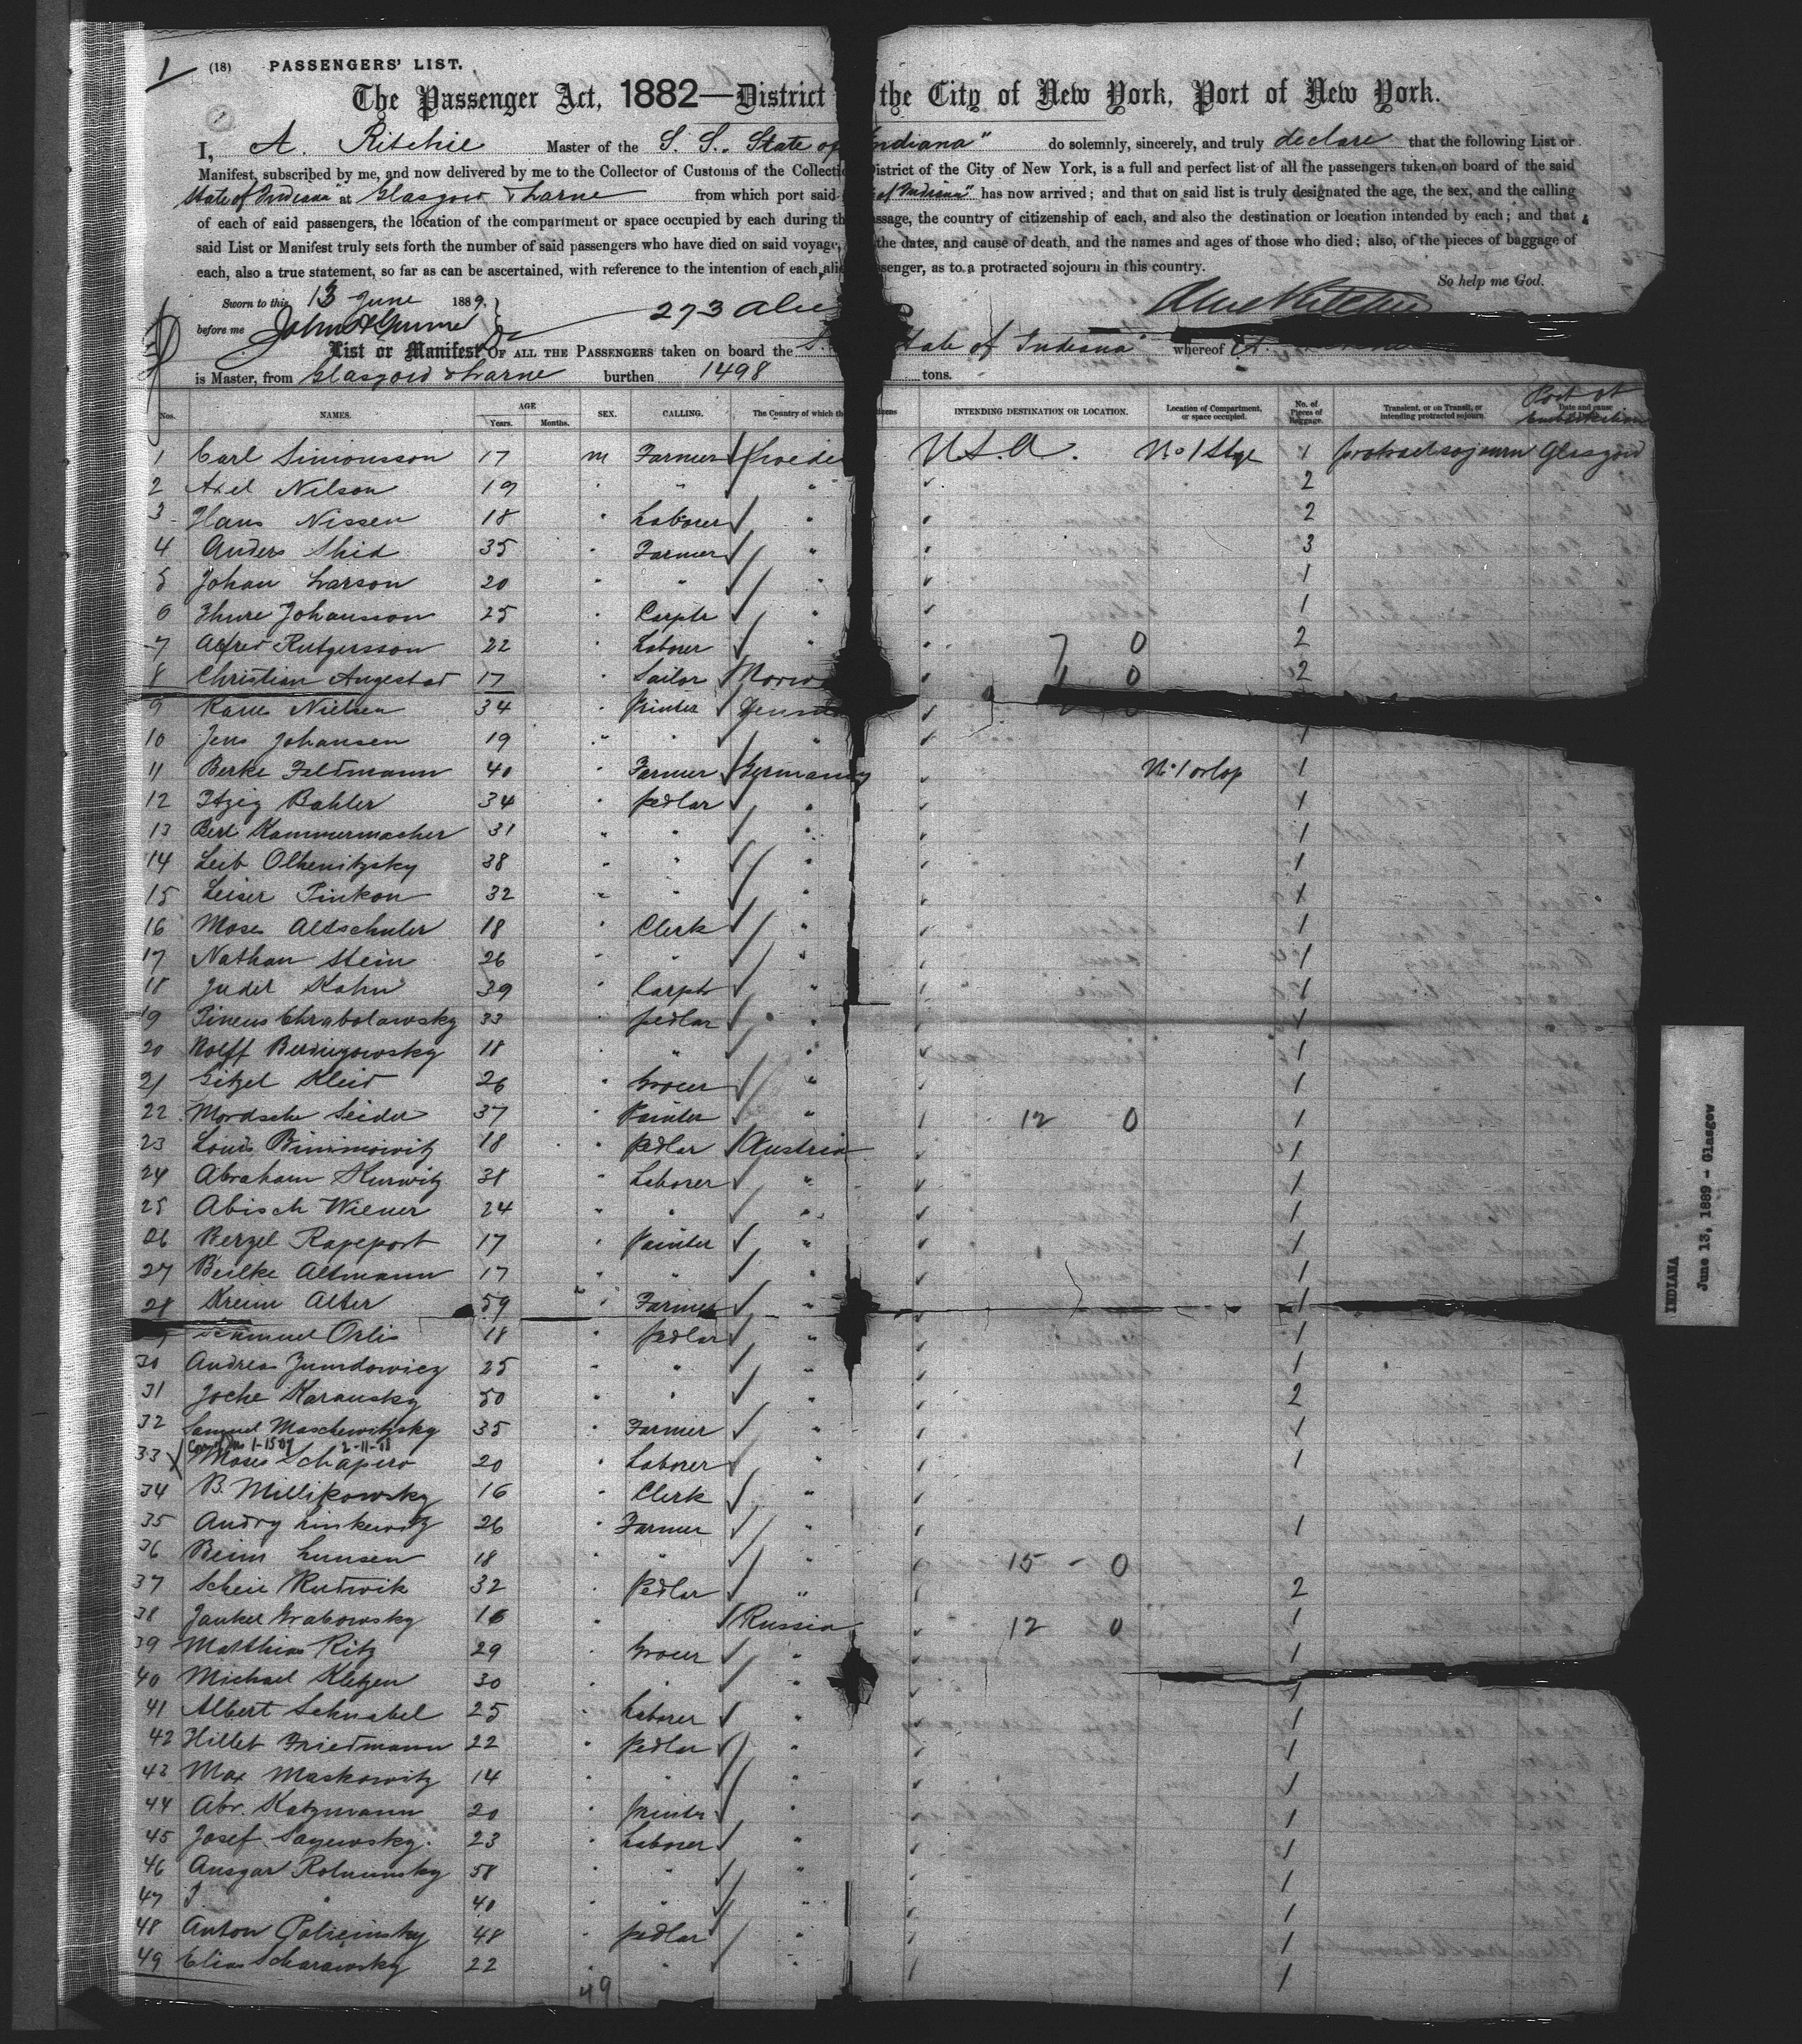 1 (18) PASSENGERS' LIST.
The Passenger Act, 1882—District the City of New York, Port of New York.
I, A. Ritchie Master of the S. S. State of Indiana" do solemnly, sincerely, and truly declare that the following List or
Manifest, subscribed by me, and now delivered by me to the Collector of Customs of the Collection District of the City of New York, is a full and perfect list of all the passengers taken on board of the said
State of Indiana" at Glasgow & Larne from which port said of Indiana" has now arrived; and that on said list is truly designated the age, the sex, and the calling
of each of said passengers, the location of the compartment or space occupied by each during the passage, the country of citizenship of each, and also the destination or location intended by each; and that
said List or Manifest truly sets forth the number of said passengers who have died on said voyage, the dates, and cause of death, and the names and ages of those who died; also, of the pieces of baggage of
each, also a true statement, so far as can be ascertained, with reference to the intention of each alien passenger, as to a protracted sojourn in this country.
So help me God.
Sworn to this 13 June 1889,
before me 273
List or Manifest OF ALL THE PASSENGERS taken on board the S. State of Indiana" whereof A.
is Master, from Glasgow & Larne burthen 1498 tons.
Nos. NAMES. AGE Years. Months. SEX. CALLING. The Country of which they citizens INTENDING DESTINATION OR LOCATION. Location of Compartment, or space occupied. No. of Pieces of Baggage. Transient, or on Transit, or intending protracted sojourn Date and cause Port of Embarkation
1 Carl Simonsson 17 m Farmer Swede U.S.A. No 1 Stge 1 protract sojourn Glasgow
2 Axel Nilson 19 " " 2
3 Hans Nissen 18 Laborer " 2
4 Anders Skid 35 Farmer " 3
5 Johan Larson 20 " " 1
6 Thure Johansson 25 Carptr " 1
7 Alfred Rutgersson 22 Laborer " 7 0 2
8 Christian Angestad 17 Sailor Norw 1 0 2
9 Karl Nielsen 34 Printer Denm
10 Jens Johansen 19 " " 1
11 Berke Feldmann 40 Farmer Germany No 1 orlop 1
12 Itzig Bahler 34 pedlar " 1
13 Berl Kammermacher 31 " " 1
14 Leib Olkenitzsky 38 " " 1
15 Leiser Pinkon 32 " " 1
16 Moses Altschuler 18 Clerk " 1
17 Nathan Stein 26 " " 1
18 Judel Kahn 39 Carptr " 1
19 Pineus Chrabolawsky 33 pedlar " 1
20 Wolff 18 " " 1
21 Gitzel Kleid 26 Grocer " 1
22 Mordsche Seider 37 Painter " 12 0 1
23 Louis 18 pedlar Austria 1
24 Abraham Hurwitz 38 Laborer " 1
25 Abisch Wiener 24 " " 1
26 Berzel Rapeport 17 Painter " 1
27 Beilke Altmann 17 " " 1
28 Kreim Alter 59 Farmer " 1
Samuel Orlis 18 pedlar " 1
30 Andreas 25 " " 1
31 Joche Karansky 50 " " 2
32 Samuel Maschewitzsky 35 Farmer " 1
2-11-
33 Moses Schapiro 20 Laborer " 1
34 B. Millikowsky 16 Clerk "
35 Andry Linkewitz 26 Farmer " 1
36 Beim Lunsen 18 " 15 - 0
37 Scheie Rudwik 32 Pedlar " 2
38 Jankel Grabowsky 16 Russia 12 0 1
39 Matthias Ritz 29 Grocer " 1
40 Michael Kletzen 30 " 1
41 Albert Schnabel 25 Laborer " 1
42 Hillel Friedmann 22 Pedlar " 1
43 Max Maskowitz 14 " " 1
44 Abr. Katzmann 20 printer 1
45 Josef 23 Laborer " 1
46 Ansgar 58 " " 1
47 J " 40 " " 1
48 Anton 48 pedlar " 1
49 Elias Scharawsky 22 " " 1
49
INDIANA
June 13, 1889 - Glasgow